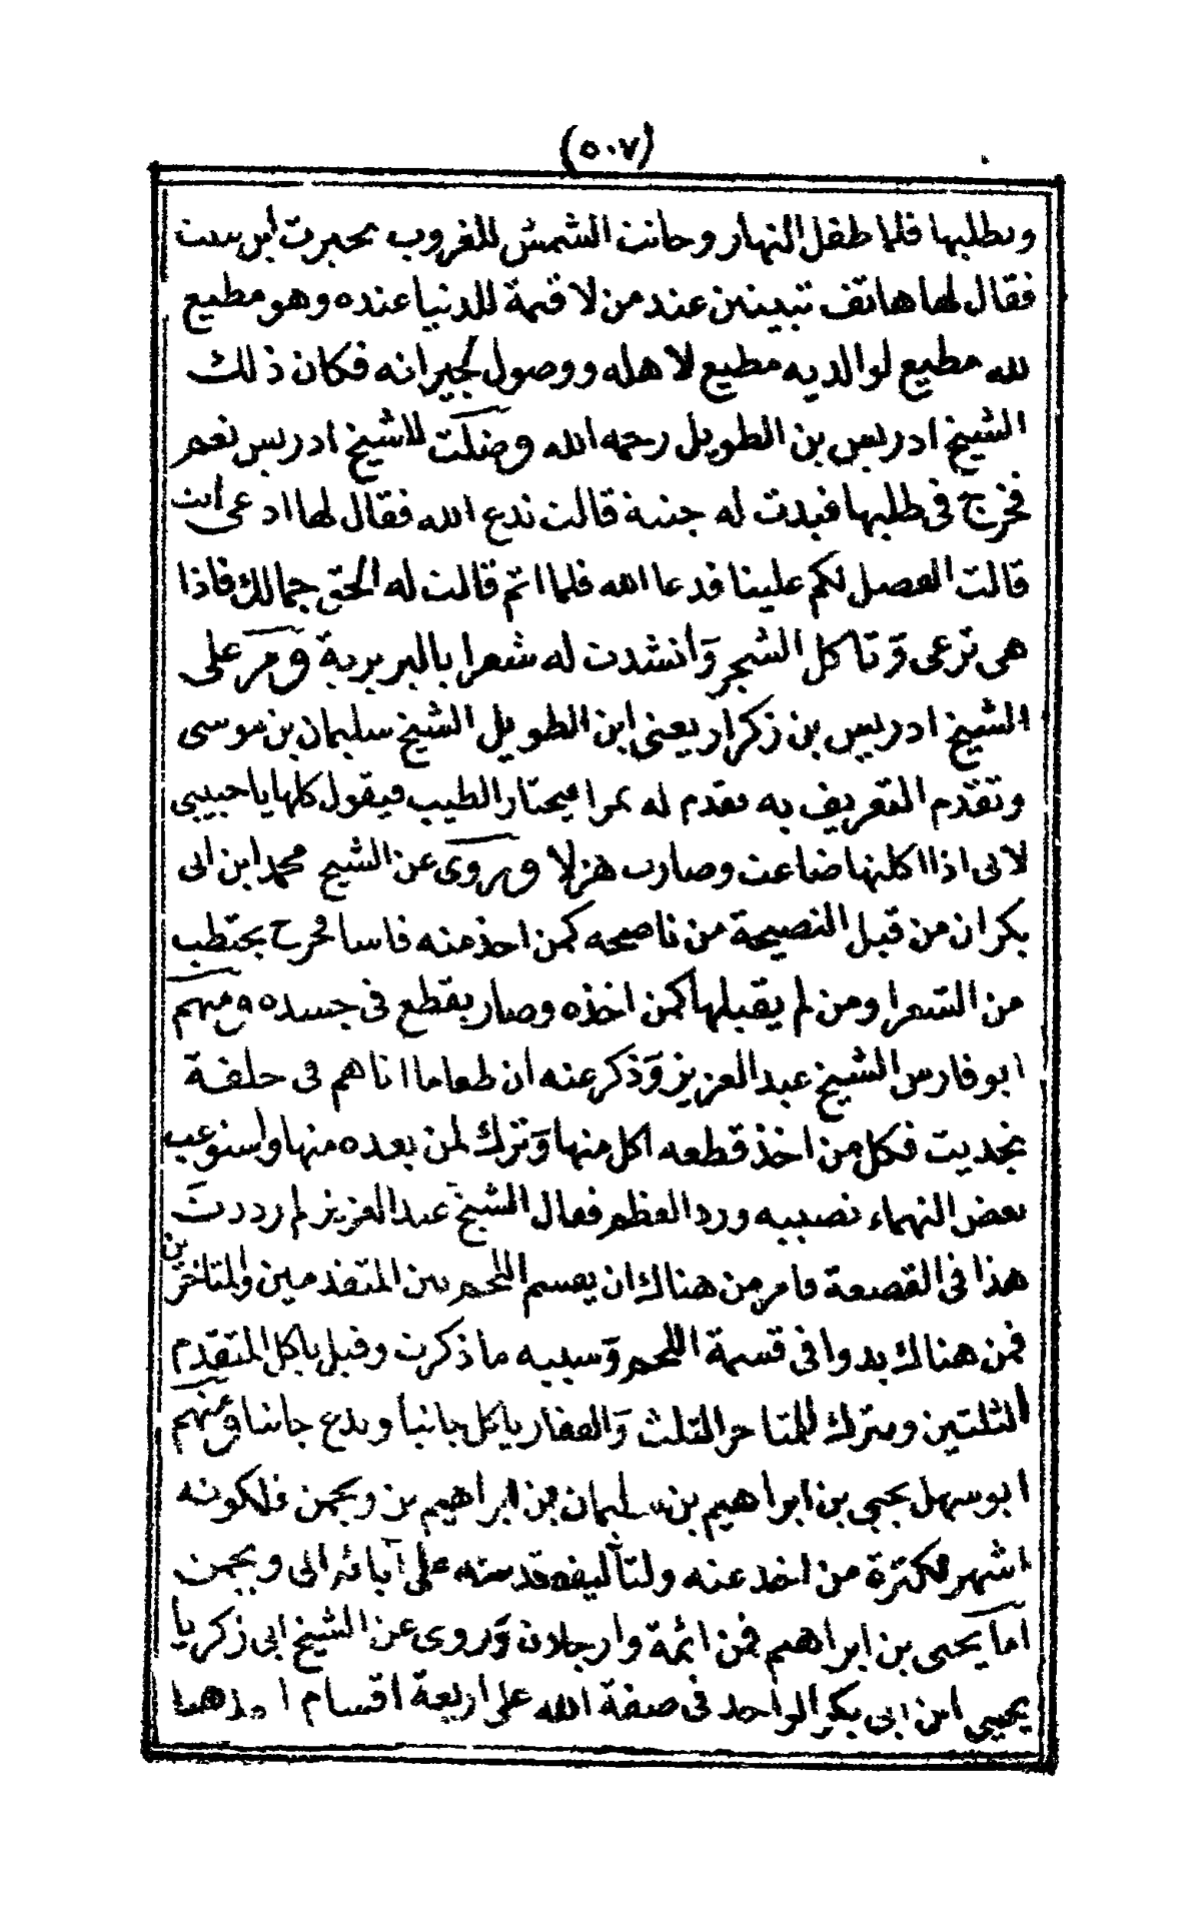 (٥٠٧)
ويطلبها فلما طفل النهار وحانت الشمس للغروب تحيرت اين تبيت
فقال لها هاتف تبيتين عند من لا قيمة للدنيا عنده وهو مطيع
لله مطيع لوالديه مطيع لاهله ووصول لجيرانه فكان ذلك
الشيخ ادريس بن الطويل رحمه الله وضلت للشيخ ادريس نعم
فخرج في طلبها فبدت له جنية قالت ندع الله فقال لها ادعى انت
قالت الفضل لكم علينا فدعا الله فلما اتم قالت له الحق جمالك فاذا
هي ترعى وتاكل الشجر وانشدت له شعرا بالبربرية ومر على
الشيخ ادريس بن زكرار يعنى ابن الطويل الشيخ سليمان بن موسى
وتقدم التعريف به فقدم له تمرا فيختار الطيب فيقول كلها يا حبيبى
لانى اذا اكلتها ضاعت وصارت هزلا وروى عن الشيخ محمد ابن ابى
بكر ان من قبل النصيحة من ناصحه كمن اخذ منه فاسا فخرج يحتطب
من الشعرا ومن لم يقبلها كمن اخذه وصار يقطع في جسده ومنهم
ابو فارس الشيخ عبد العزيز وذكر عنه ان طعاما اتاهم فى حلقة
بنجديت فكل من اخذ قطعه اكل منها وترك لمن بعده منها واستوعب
بعض النهماء نصيبه ورد العظم فقال الشيخ عبد العزيز لم رددت
هذا فى القصعة فامر من هناك ان يقسم اللحم بين المتقدمين والمتاخرين
فمن هناك بدوا فى قسمة اللحم وسببه ما ذكرت وقيل ياكل المتقدم
الثلثين ويترك للمتاخر الثلث والفقار ياكل جانبا ويدع جانبا ومنهم
ابو سهل يحيى بن ابراهيم بن سليمان بن ابراهيم بن ويجمن فلكونه
اشهر فكثرة من اخذ عنه ولتآليفه قدمته على آبائه الى ويجمن
اما يحيى بن ابراهيم فمن ائمة وارجلان وروى عن الشيخ ابى زكريا
يحيى ابن ابى بكر الواحد فى صفة الله على اربعة اقسام